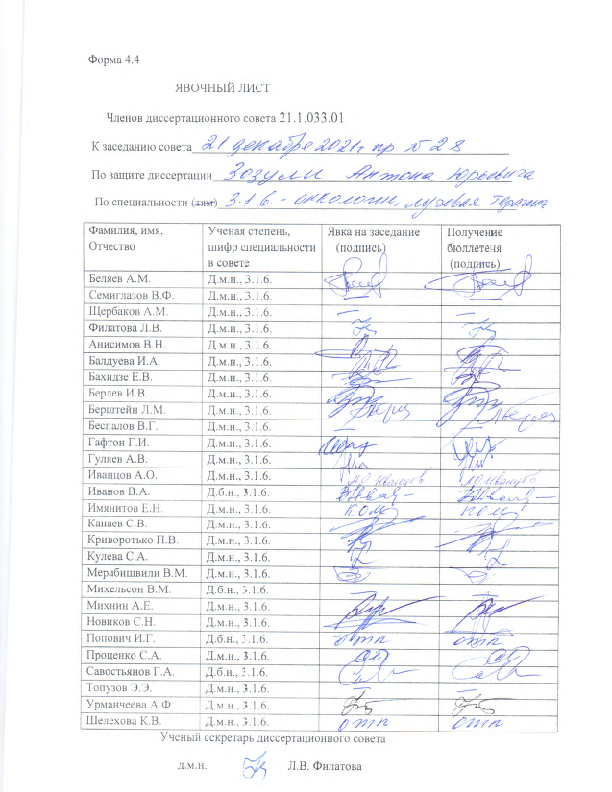 Форма 4.4
ЯВОЧНЫЙ ЛИСТ
Членов диссертационного совета 21.1.033.01
К заседанию совета 21 декабря 2021г пр № 28
По защите диссертации Зозули Антона Юрьевича
По специальности (тям) 3.1.6. - онкология, лучевая терапия
Фамилия, имя, Отчество Ученая степень, шифр специальности в совете Явка на заседание (подпись) Получение бюллетеня (подпись)
Беляев А.М. Д.м.н., 3.1.6.
Семиглазов В.Ф. Д.м.н., 3.1.6. — —
Щербаков А.М. Д.м.н., 3.1.6. — —
Филатова Л.В. Д.м.н., 3.1.6.
Анисимов В.Н. Д.м.н., 3.1.6.
Балдуева И.А Д.м.н., 3.1.6.
Бахидзе Е.В. Д.м.н., 3.1.6.
Берлев И.В. Д.м.н., 3.1.6.
Берштейн Л.М. Д.м.н., 3.1.6.
Беспалов В.Г. Д.м.н., 3.1.6. — —
Гафтон Г.И. Д.м.н., 3.1.6.
Гуляев А.В. Д.м.н., 3.1.6.
Иванцов А.О. Д.м.н., 3.1.6. А.О. Иванцов А.О. Иванцов
Иванов В.А. Д.б.н., 3.1.6.
Имянитов Е.Н. Д.м.н., 3.1.6. ком ком
Канаев С.В. Д.м.н., 3.1.6.
Криворотько П.В. Д.м.н., 3.1.6.
Кулева С.А. Д.м.н., 3.1.6.
Мерабишвили В.М. Д.м.н., 3.1.6.
Михельсон В.М. Д.б.н., 3.1.6. — —
Михнин А.Е. Д.м.н., 3.1.6.
Новиков С.Н. Д.м.н., 3.1.6.
Попович И.Г. Д.б.н., 3.1.6. отп отп
Проценко С.А. Д.м.н., 3.1.6.
Савостьянов Г.А. Д.б.н., 3.1.6.
Топузов Э.Э. Д.м.н., 3.1.6. — —
Урманчеева А.Ф Д.м.н., 3.1.6.
Шелехова К.В. Д.м.н., 3.1.6. отп отп
Ученый секретарь диссертационного совета
д.м.н. Л.В. Филатова